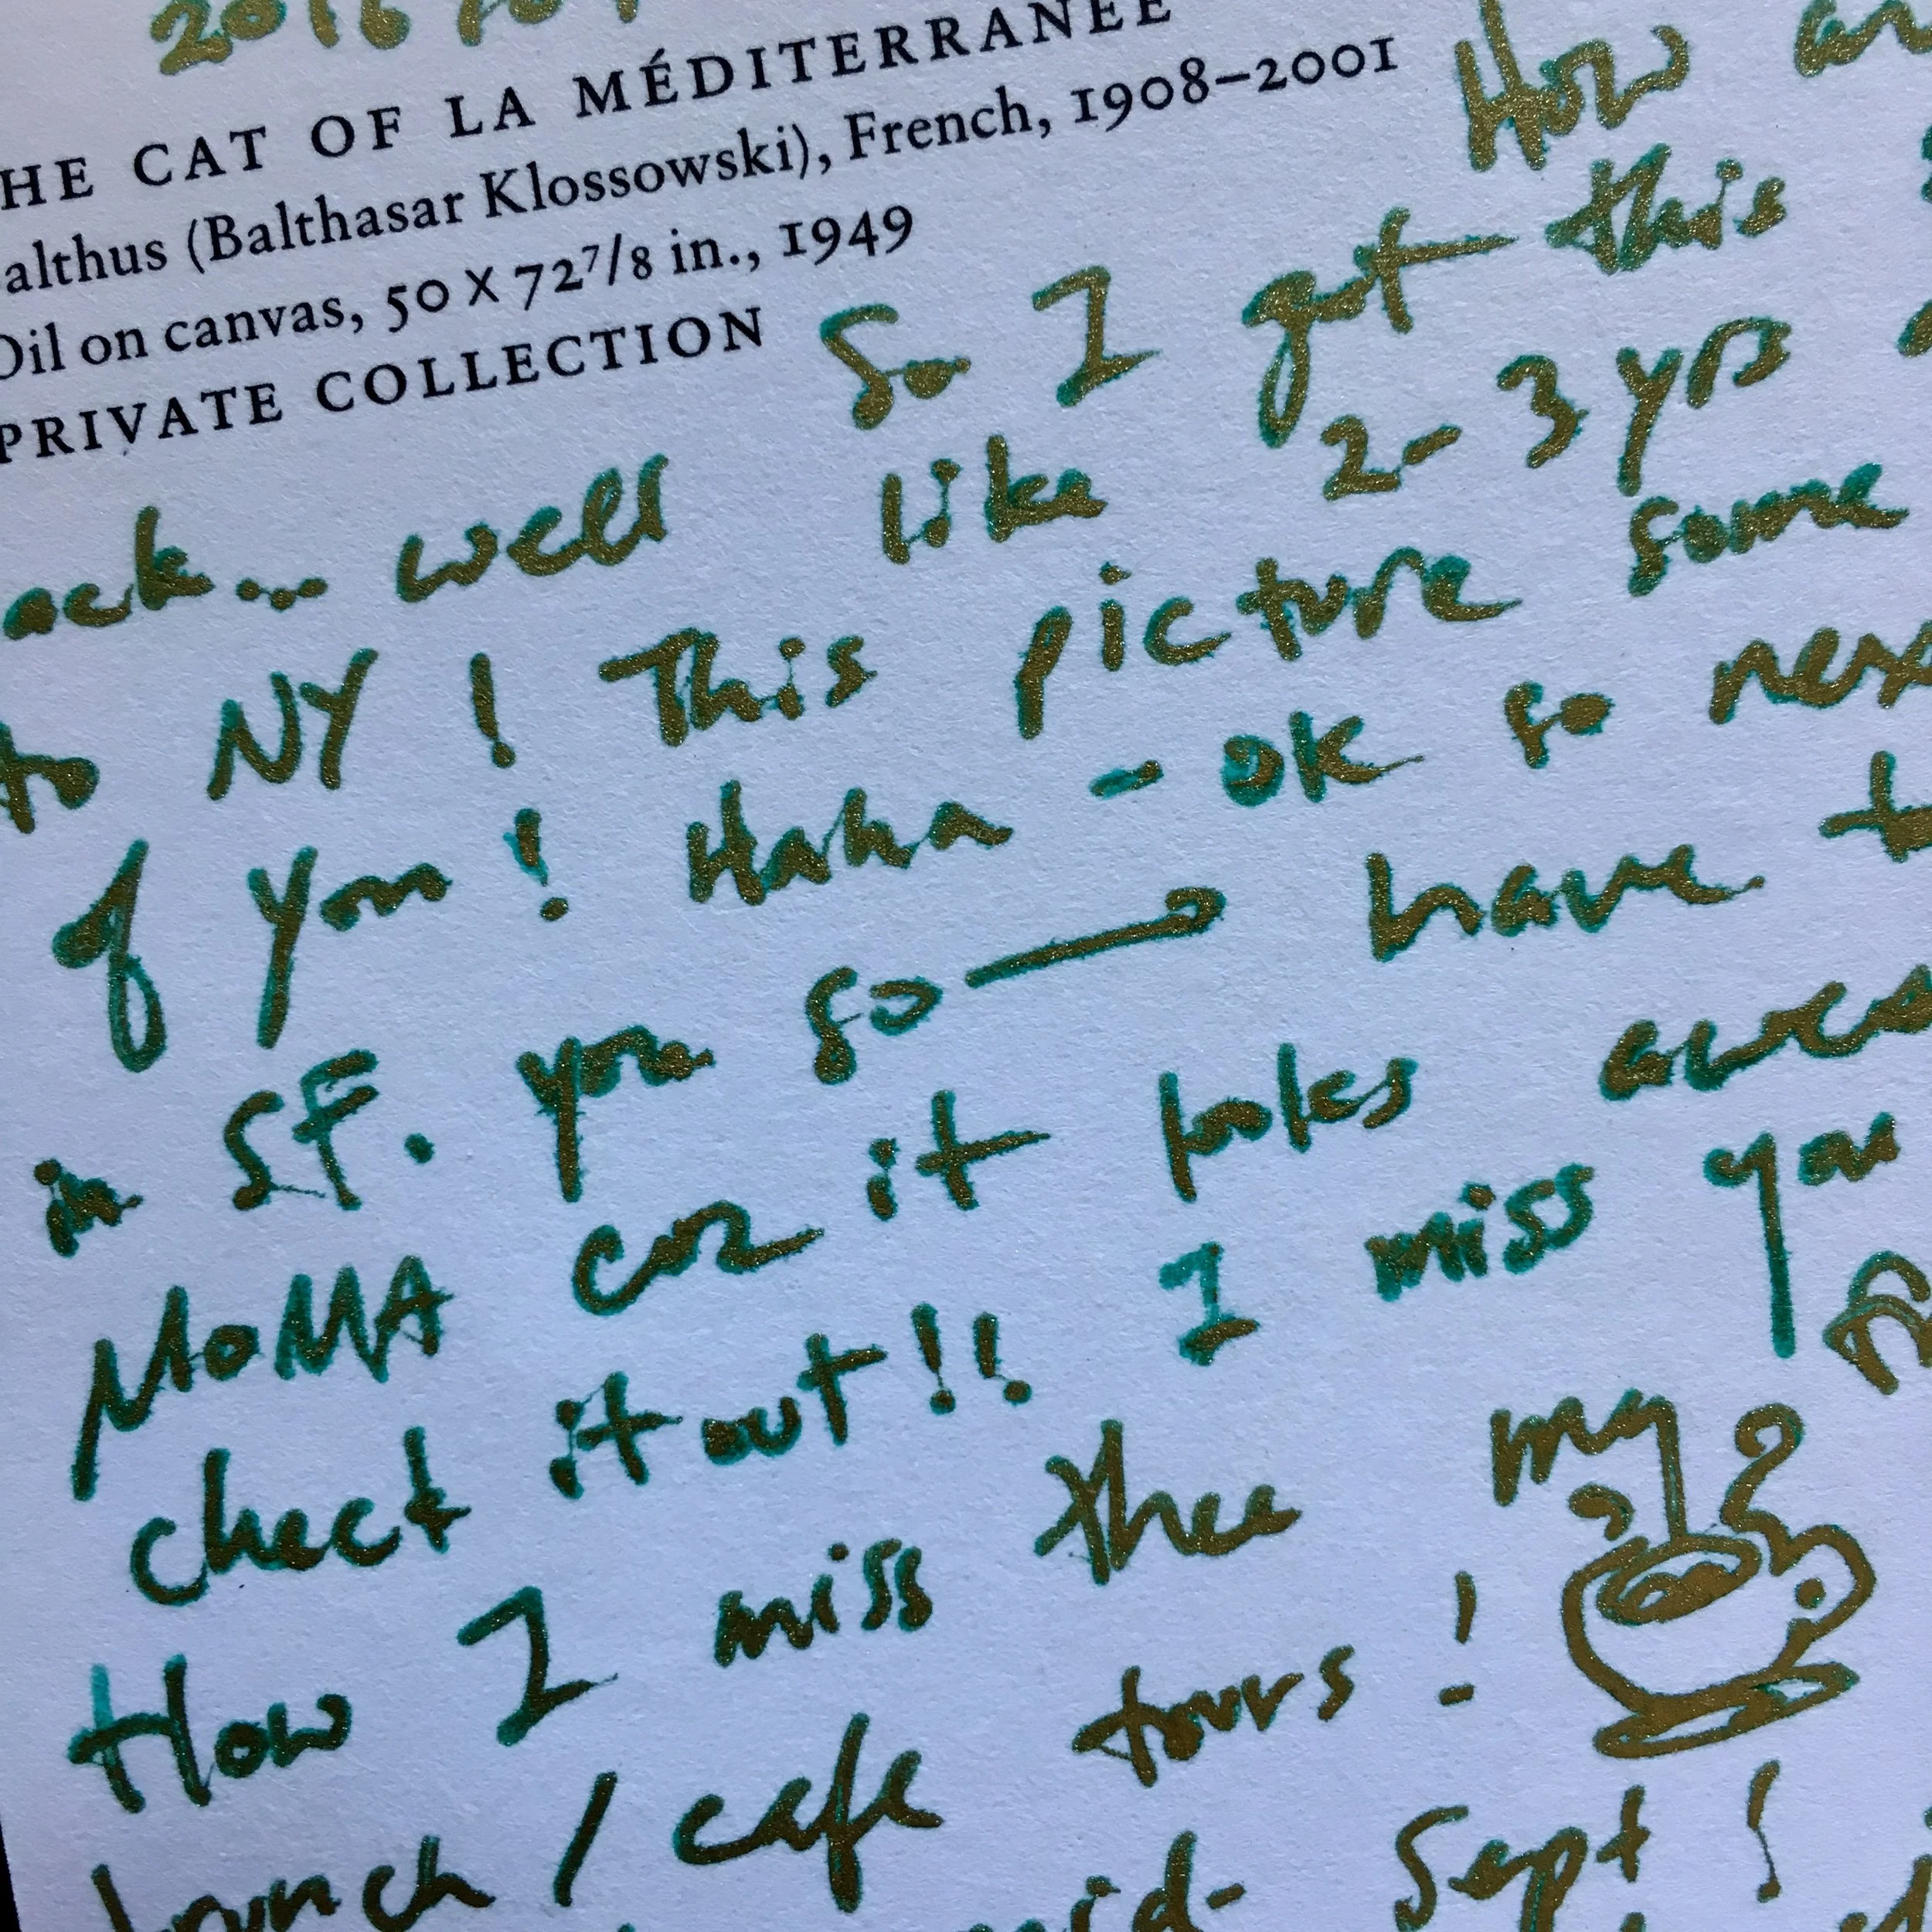 2016
HE CAT OF LA MÉDITERRANÉE
althus (Balthasar Klossowski), French, 1908–2001
Oil on canvas, 50 X 72 7/8 in., 1949
PRIVATE COLLECTION
How
So I got this
ack... well like 2-3 yrs
to NY! This picture some
of you! Haha - OK so nex
in SF. you so have t
MoMA coz it looks awes
check it out!! I miss you
How I miss thee my
brunch / cafe tours!
mid- Sept!